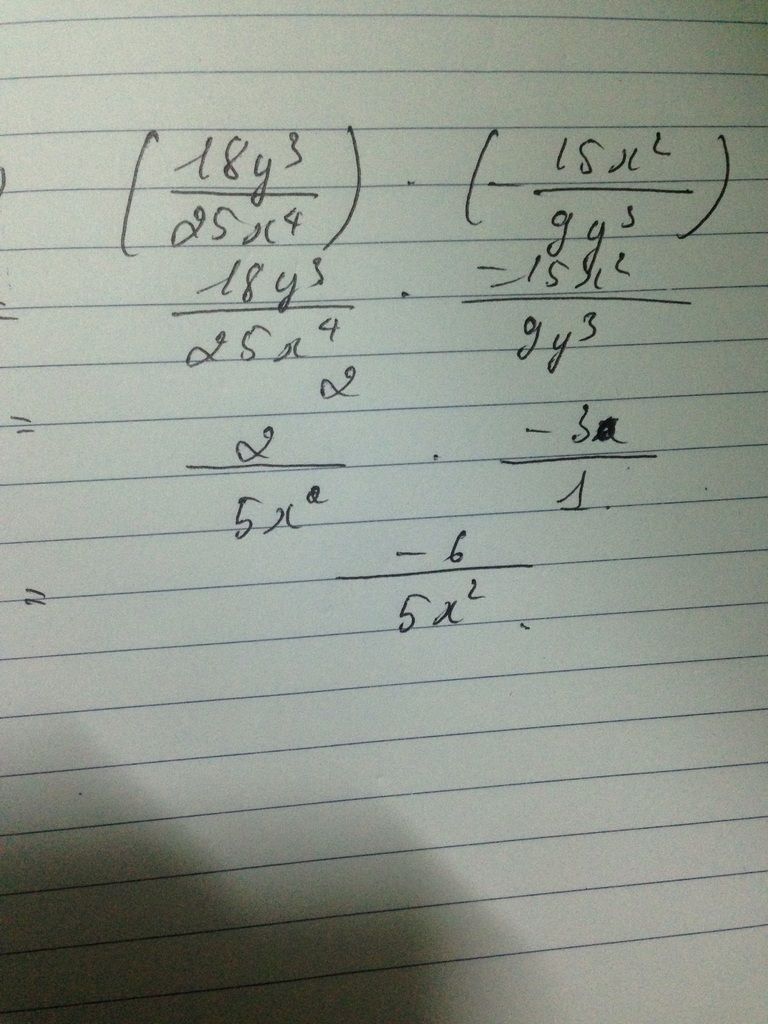 ) (18y³/25x⁴) · (- 15x²/9y³)
= 18y³/25x⁴ · -15x²/9y³
2
= 2/5x² · -3/1
= -6/5x².